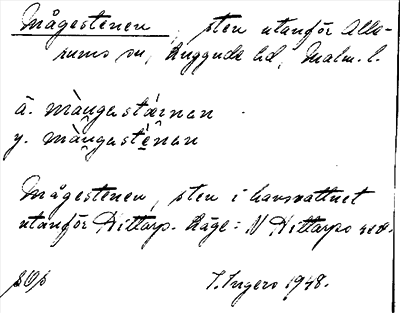 Mågestenen, sten utanför Alle-
rums sn, Luggude hd, Malm. l.
ä. måŋastärnan
y. måŋastenan
Mågestenen, sten i havsvattnet
utanför Hittarp. Läge: N Hittarps
S. Ingers 1948.